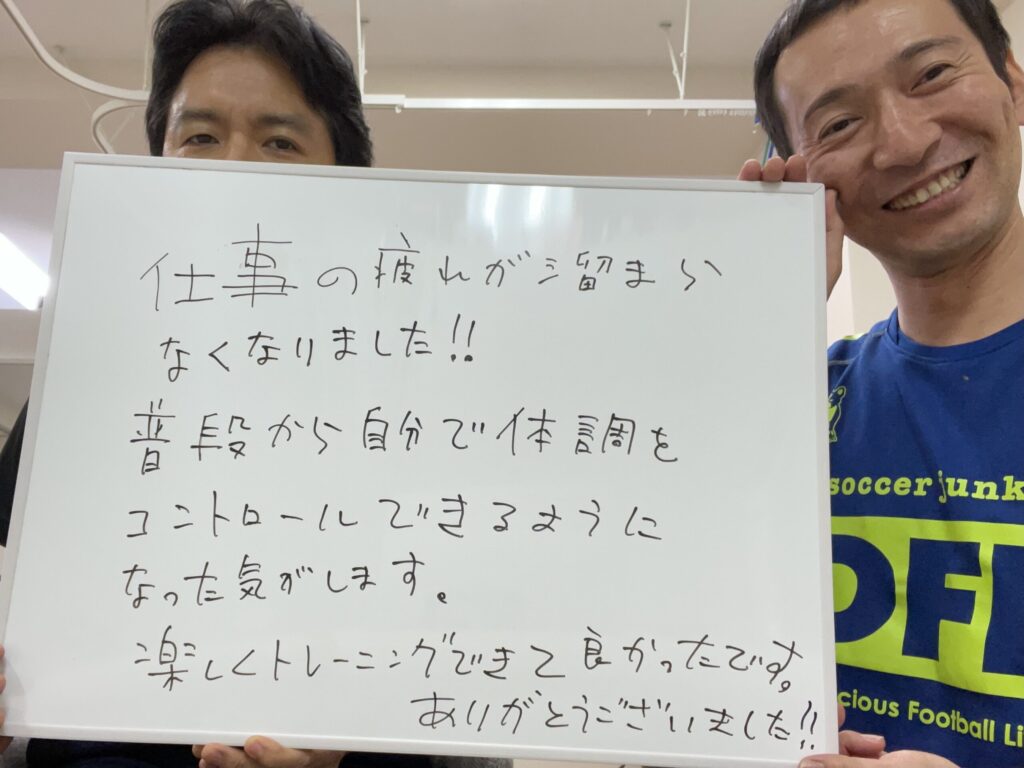 仕事の疲れが溜まら
なくなりました!!
普段から自分で体調を
コントロールできるように
なった気がします。
楽しくトレーニングできて良かったです。
ありがとうございました!!
soccer junk
DF
cious Football Li